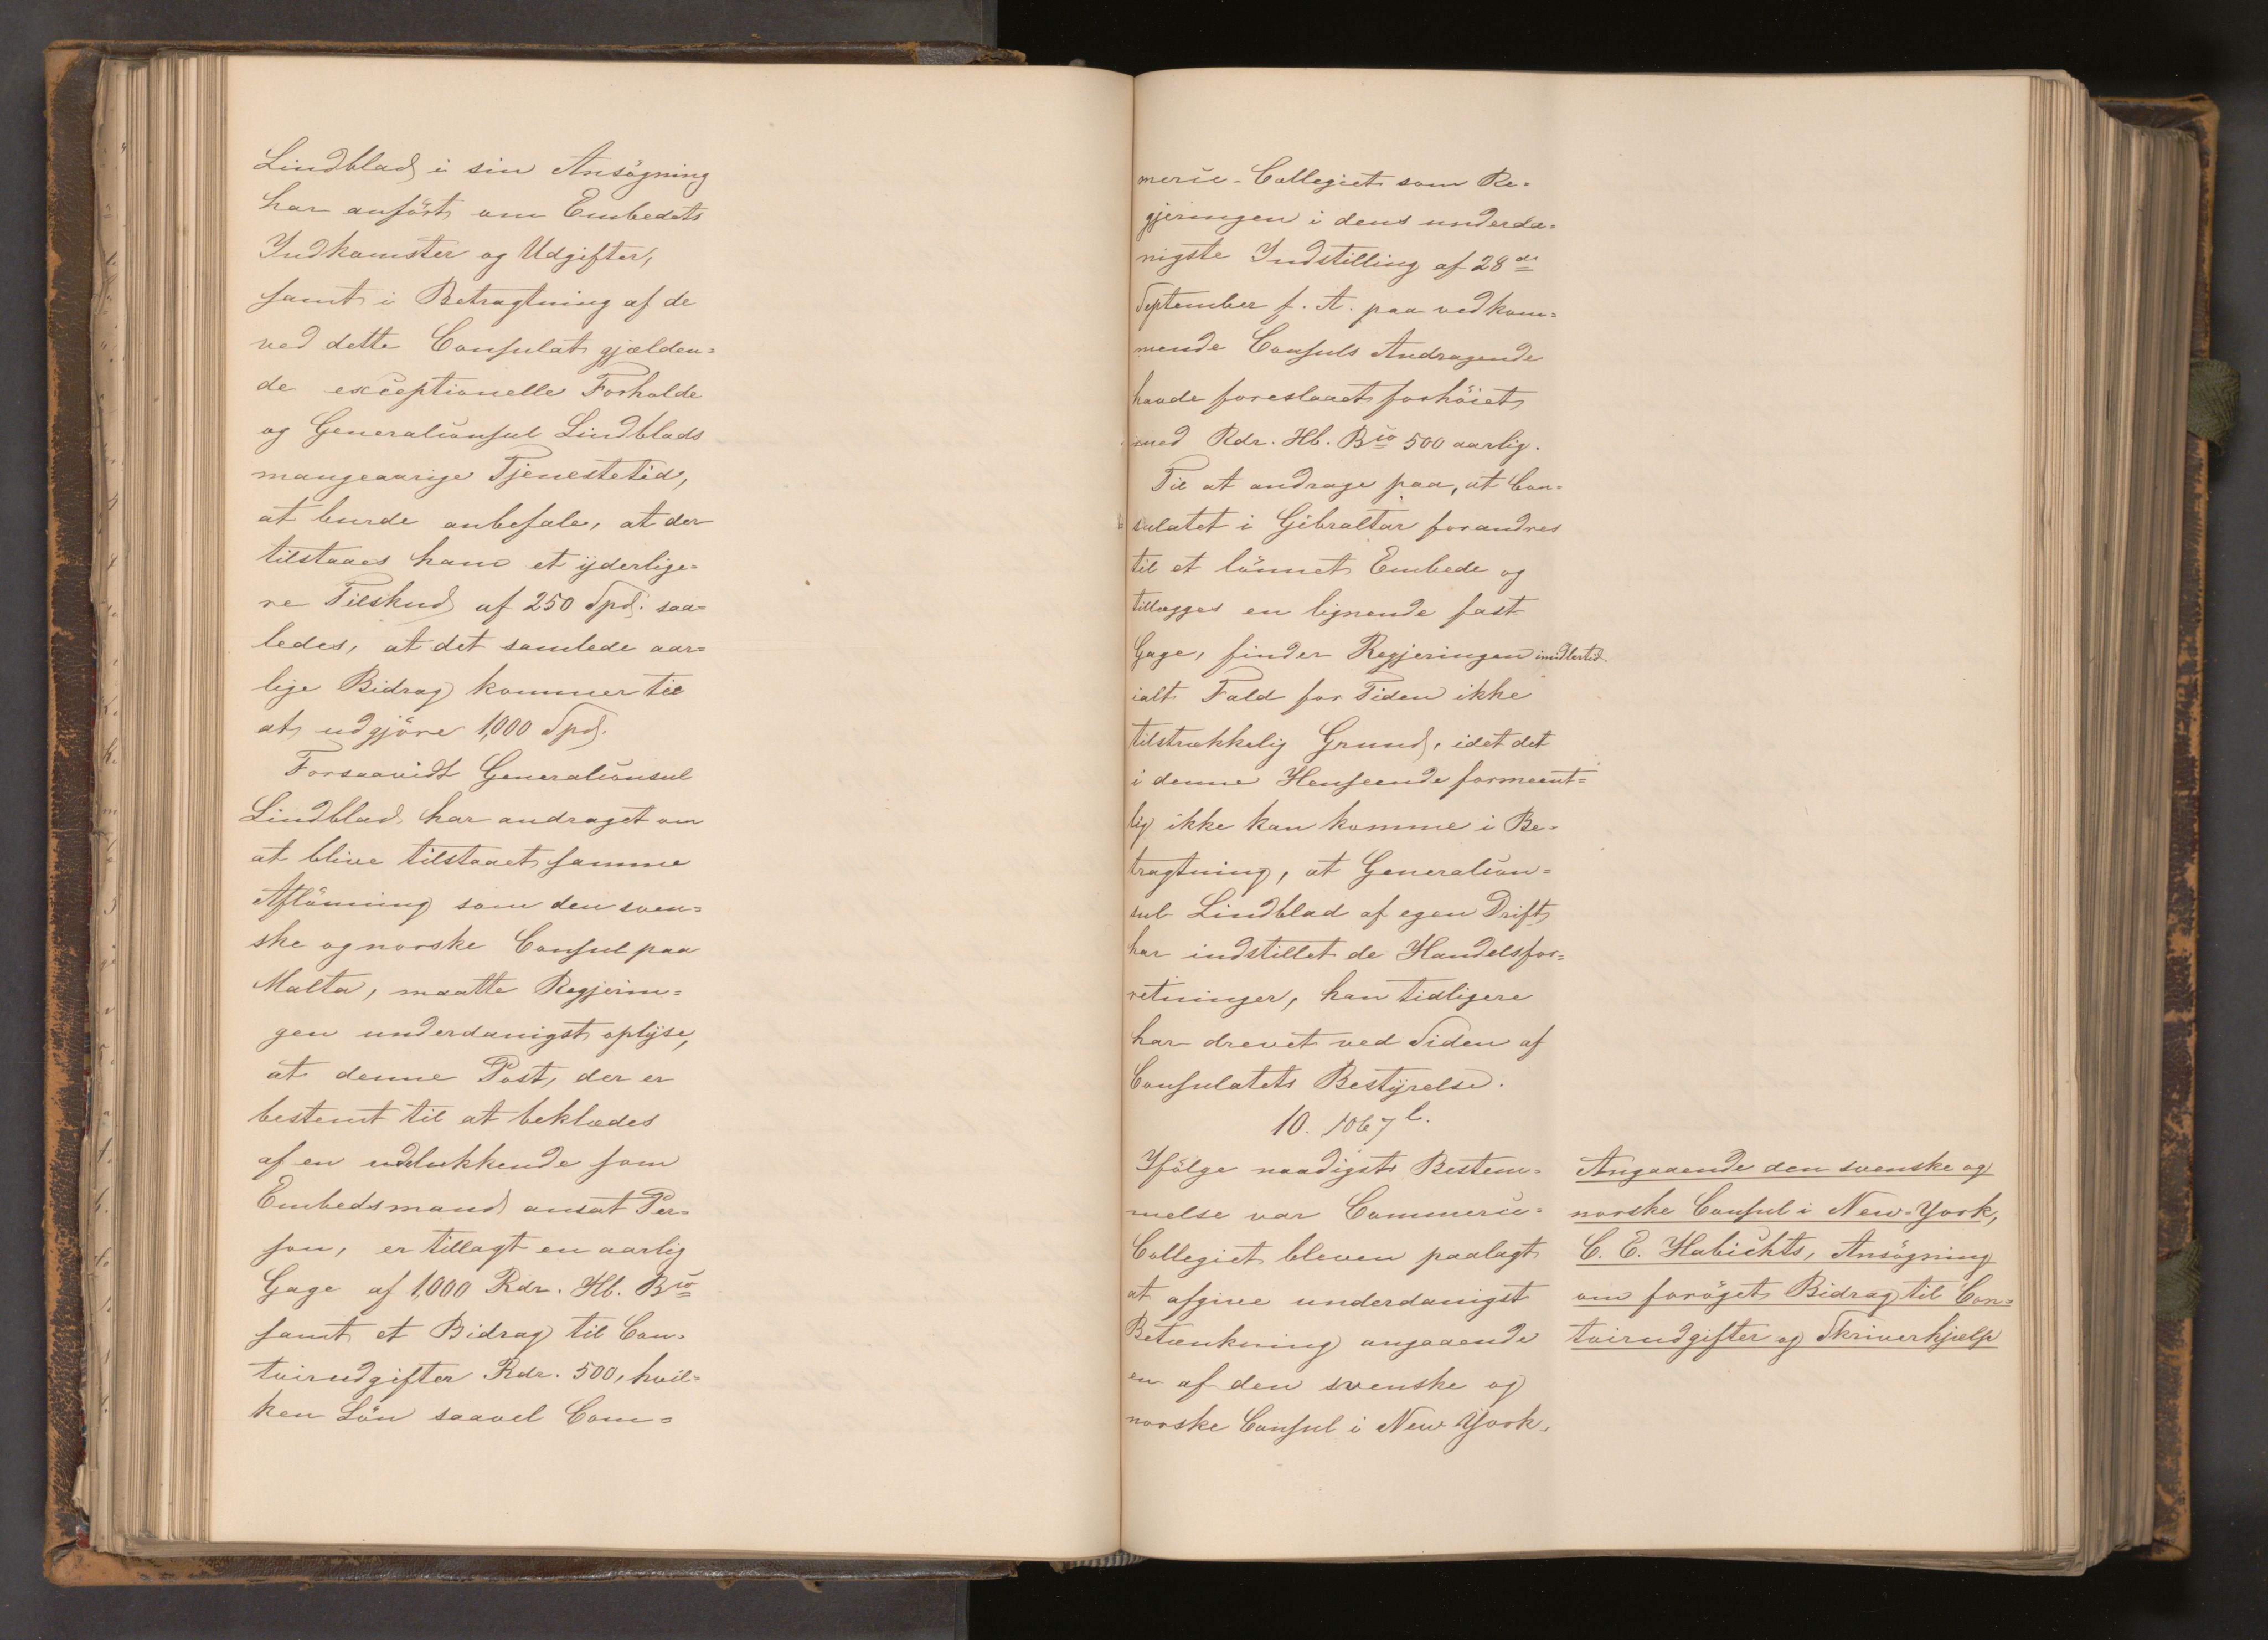 Lindblad i sin Ansögning
har anfört om Embedets
Indkomster og Udgifter,
samt i Betragtning af de
ved dette Consulat gjælden=
de exceptionelle Forholde
og Generalconsul Lindblads
mangeaarige Tjenestetid,
at burde anbefale, at der
tilstaaes ham et yderlige=
re Tilskud af 250 Spd. saa=
ledes, at det samlede aar=
lige Bidrag kommer til
at udgjöre 1,000 Spd.
Forsaavidt Generalconsul
Lindblad har andraget om
at blive tilstaaet samme
Aflönning som den sven=
ske og norske Consul paa
Malta, maatte Regjerin=
gen underdanigst oplyse,
at denne Post, der er
bestemt til at beklædes
af en udelukkende som
Embedsmand ansat Per=
son, er tillagt en aarlig
Gage af 1,000 Rdr. Hb. Bco
samt et Bidrag til Con=
toirudgifter Rdr. 500, hvil=
ken Lön saavel Com=
merce-Collegiet som Re=
gjeringen i dens underda=
nigste Indstilling af 28de
September f. A. paa vedkom=
mende Consuls Andragende
havde foreslaaet forhöiet
med Rdr. Hb. Bco 500 aarlig.
Til at andrage paa, at Con=
sulatet i Gibraltar forandres
til et lönnet Embede og
tillægges en lignende fast
Gage, finder Regjeringen imidlertid
ialt Fald for Tiden ikke
tilstrækkelig Grund, idet det
i denne Henseende formeent=
lig ikke kan komme i Be=
tragtning, at Generalcon=
sul Lindblad af egen Drift
har indstillet de Handelsfor=
retninger, han tidligere
har drevet ved Siden af
Consulatets Bestyrelse.
10. 1067 l.
Ifölge naadigst Bestem=
melse var Commerce=
Collegiet bleven paalagt
at afgive underdanigst
Betænkning angaaende
en af den svenske og
norske Consul i New York,
Angaaende den svenske og
norske Consul i New-York,
C. E. Habichts, Ansögning
om foröget Bidrag til Con=
toirudgifter og Skriverhjælp